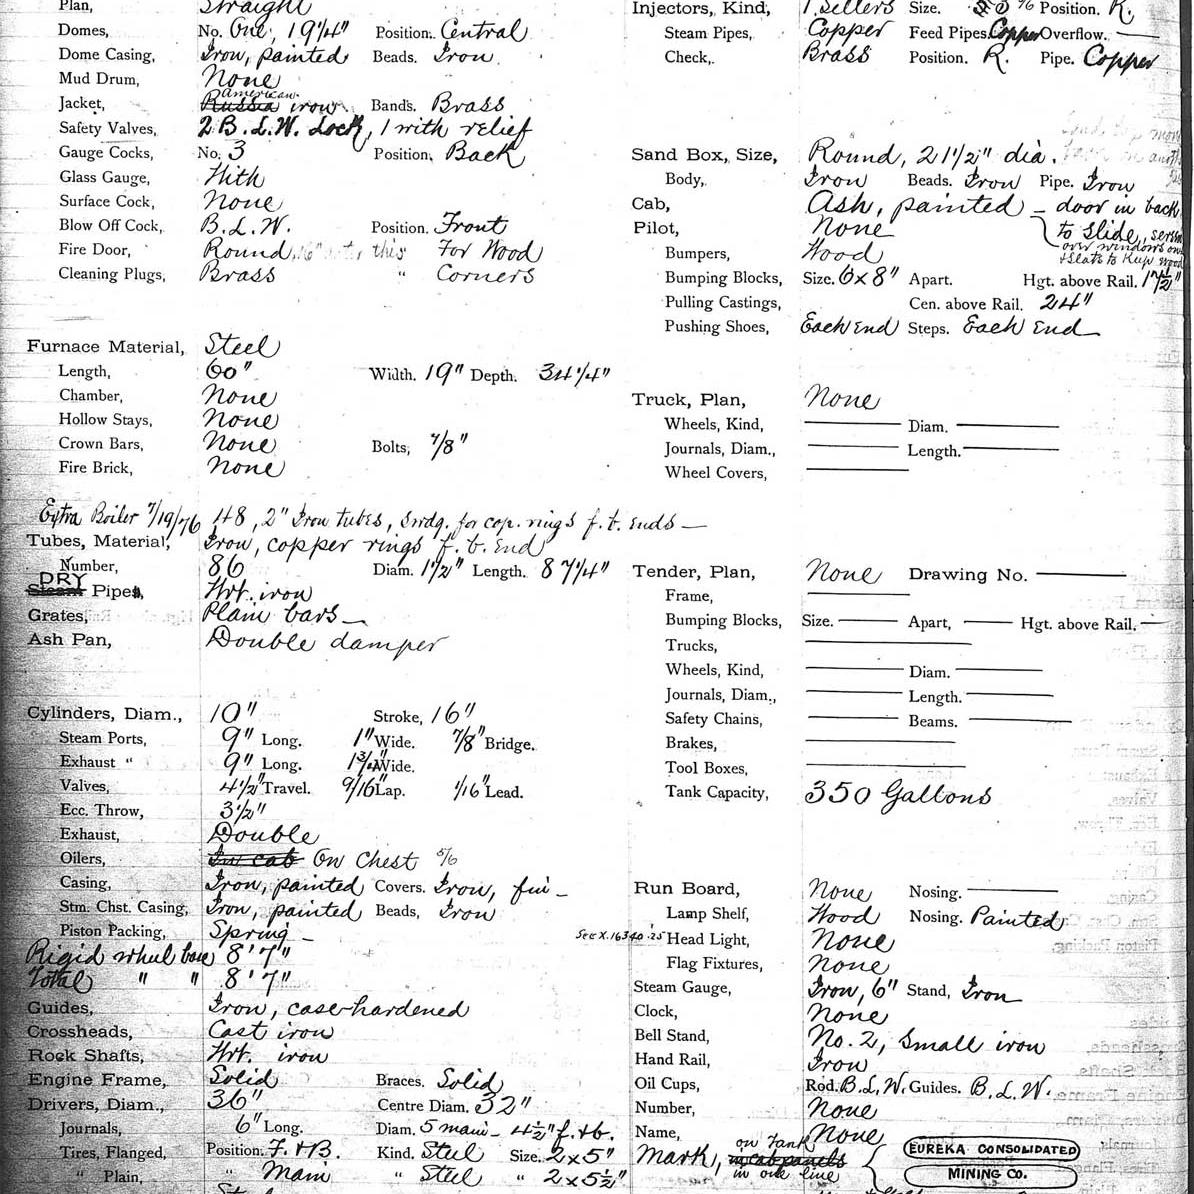 Plan, Straight
Domes, No. One, 19¼" Position. Central
Dome Casing, Iron, painted Beads. Iron
Mud Drum, None
American
Jacket, Russia iron Bands. Brass
Safety Valves, 2 B.L.W. Lock, 1 with relief
Gauge Cocks, No. 3 Position, Back
Glass Gauge, With
Surface Cock, None
Blow Off Cock, B.L.W. Position. Front
Fire Door, Round, 16" this For Wood
Cleaning Plugs, Brass " Corners
Furnace Material, Steel
Length, 60" Width. 19" Depth. 34¼"
Chamber, None
Hollow Stays, None
Crown Bars, None Bolts, 7/8"
Fire Brick, None
Extra Boiler 7/19/76 48, 2" Iron tubes, swdg. for cop. rings f. b. ends —
Tubes, Material, Iron, copper rings f. b. End
Number, 86 Diam. 1½" Length. 87¼"
DRY
Steam Pipes, Wrt. iron
Grates, Plain bars —
Ash Pan, Double damper
Cylinders, Diam., 10" Stroke, 16"
Steam Ports, 9" Long. 1" Wide. 7/8" Bridge.
Exhaust " 9" Long. 1¾" Wide.
Valves, 4½" Travel. 9/16" Lap. 1/16" Lead.
Ecc. Throw, 3½"
Exhaust, Double
Oilers, In cab On Chest 5/6
Casing, Iron, painted Covers. Iron, fin —
Stm. Chst. Casing, Iron, painted Beads, Iron
Piston Packing, Spring —
Rigid wheel base 8' 7"
Total " " 8' 7"
Guides, Iron, case-hardened
Crossheads, Cast iron
Rock Shafts, Wrt. iron
Engine Frame, Solid Braces. Solid
Drivers, Diam., 36" Centre Diam. 32"
Journals, 6" Long. Diam. 5 main — 4½" f. & b.
Tires, Flanged, Position. F. & B. Kind. Steel Size. 2 x 5"
" Plain, " Main " Steel " 2 x 5½"
Injectors, Kind, 1. Sellers Size. Position. R.
Steam Pipes, Copper Feed Pipes. Copper Overflow. —
Check, Brass Position. R. Pipe. Copper
Sand Box, Size, Round, 21½" dia.
Body, Iron Beads. Iron Pipe. Iron
Cab, Ash, painted — door in back
to slide, screen
over windows on
& slats to keep wood
Pilot, None
Bumpers, Wood
Bumping Blocks, Size. 6x8" Apart. Hgt. above Rail. 17½"
Pulling Castings, Cen. above Rail. 24"
Pushing Shoes, Each End Steps. Each End
Truck, Plan, None
Wheels, Kind, — Diam. —
Journals, Diam., — Length. —
Wheel Covers, —
Tender, Plan, None Drawing No. —
Frame, —
Bumping Blocks, Size. — Apart, — Hgt. above Rail. —
Trucks, —
Wheels, Kind, — Diam. —
Journals, Diam., — Length. —
Safety Chains, — Beams. —
Brakes, —
Tool Boxes, —
Tank Capacity, 350 Gallons
Run Board, None Nosing. —
Lamp Shelf, Wood Nosing. Painted
See X. 16340.25 Head Light, None
Flag Fixtures, None
Steam Gauge, Iron, 6" Stand, Iron
Clock, None
Bell Stand, No. 2, Small iron
Hand Rail, Iron
Oil Cups, Rod. B.L.W. Guides. B.L.W.
Number, None
Name, None
on Tank
Mark, in cab panels
in one line
EUREKA CONSOLIDATED
MINING CO.